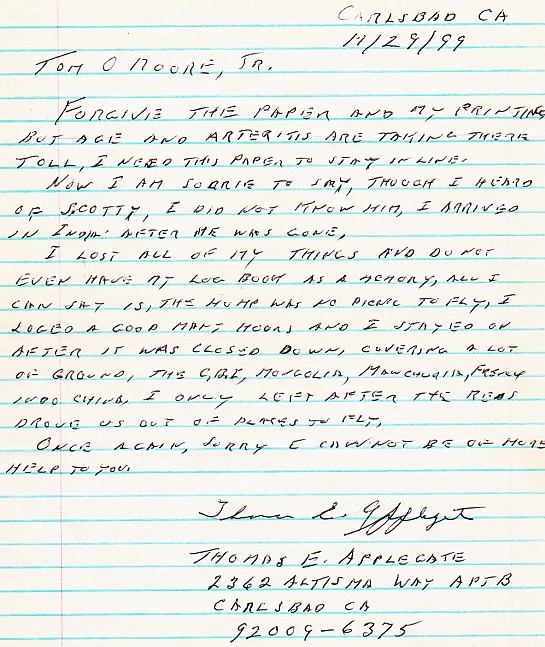 CARLSBAD CA
11/29/99
TOM O MOORE, JR.
FORGIVE THE PAPER AND MY PRINTING
BUT AGE AND ARTERITIS ARE TAKING THERE
TOLL, I NEED THIS PAPER TO STAY IN LINE.
NOW I AM SORRIE TO SAY, THOUGH I HEARD
OF SCOTTY, I DID NOT KNOW HIM, I ARRIVED
IN INDIA AFTER HE WAS GONE,
I LOST ALL OF MY THINGS AND DO NOT
EVEN HAVE MY LOG BOOK AS A MEMORY, ALL I
CAN SAY IS, THE HUMP WAS NO PICNIC TO FLY, I
LOGED A GOOD MANY HOURS AND I STAYED ON
AFTER IT WAS CLOSED DOWN, COVERING A LOT
OF GROUND, THE C,B,I, MONGOLIA, MANCHURIA, FRENCH
INDO CHINA. I ONLY LEFT AFTER THE REDS
DROVE US OUT OF PLACES TO FLY,
ONCE AGAIN, SORRY I CANNOT BE OF MORE
HELP TO YOU.
Thomas E. Applegate
THOMAS E. APPLEGATE
2362 ALTISMA WAY APTB
CARLSBAD CA
92009-6375